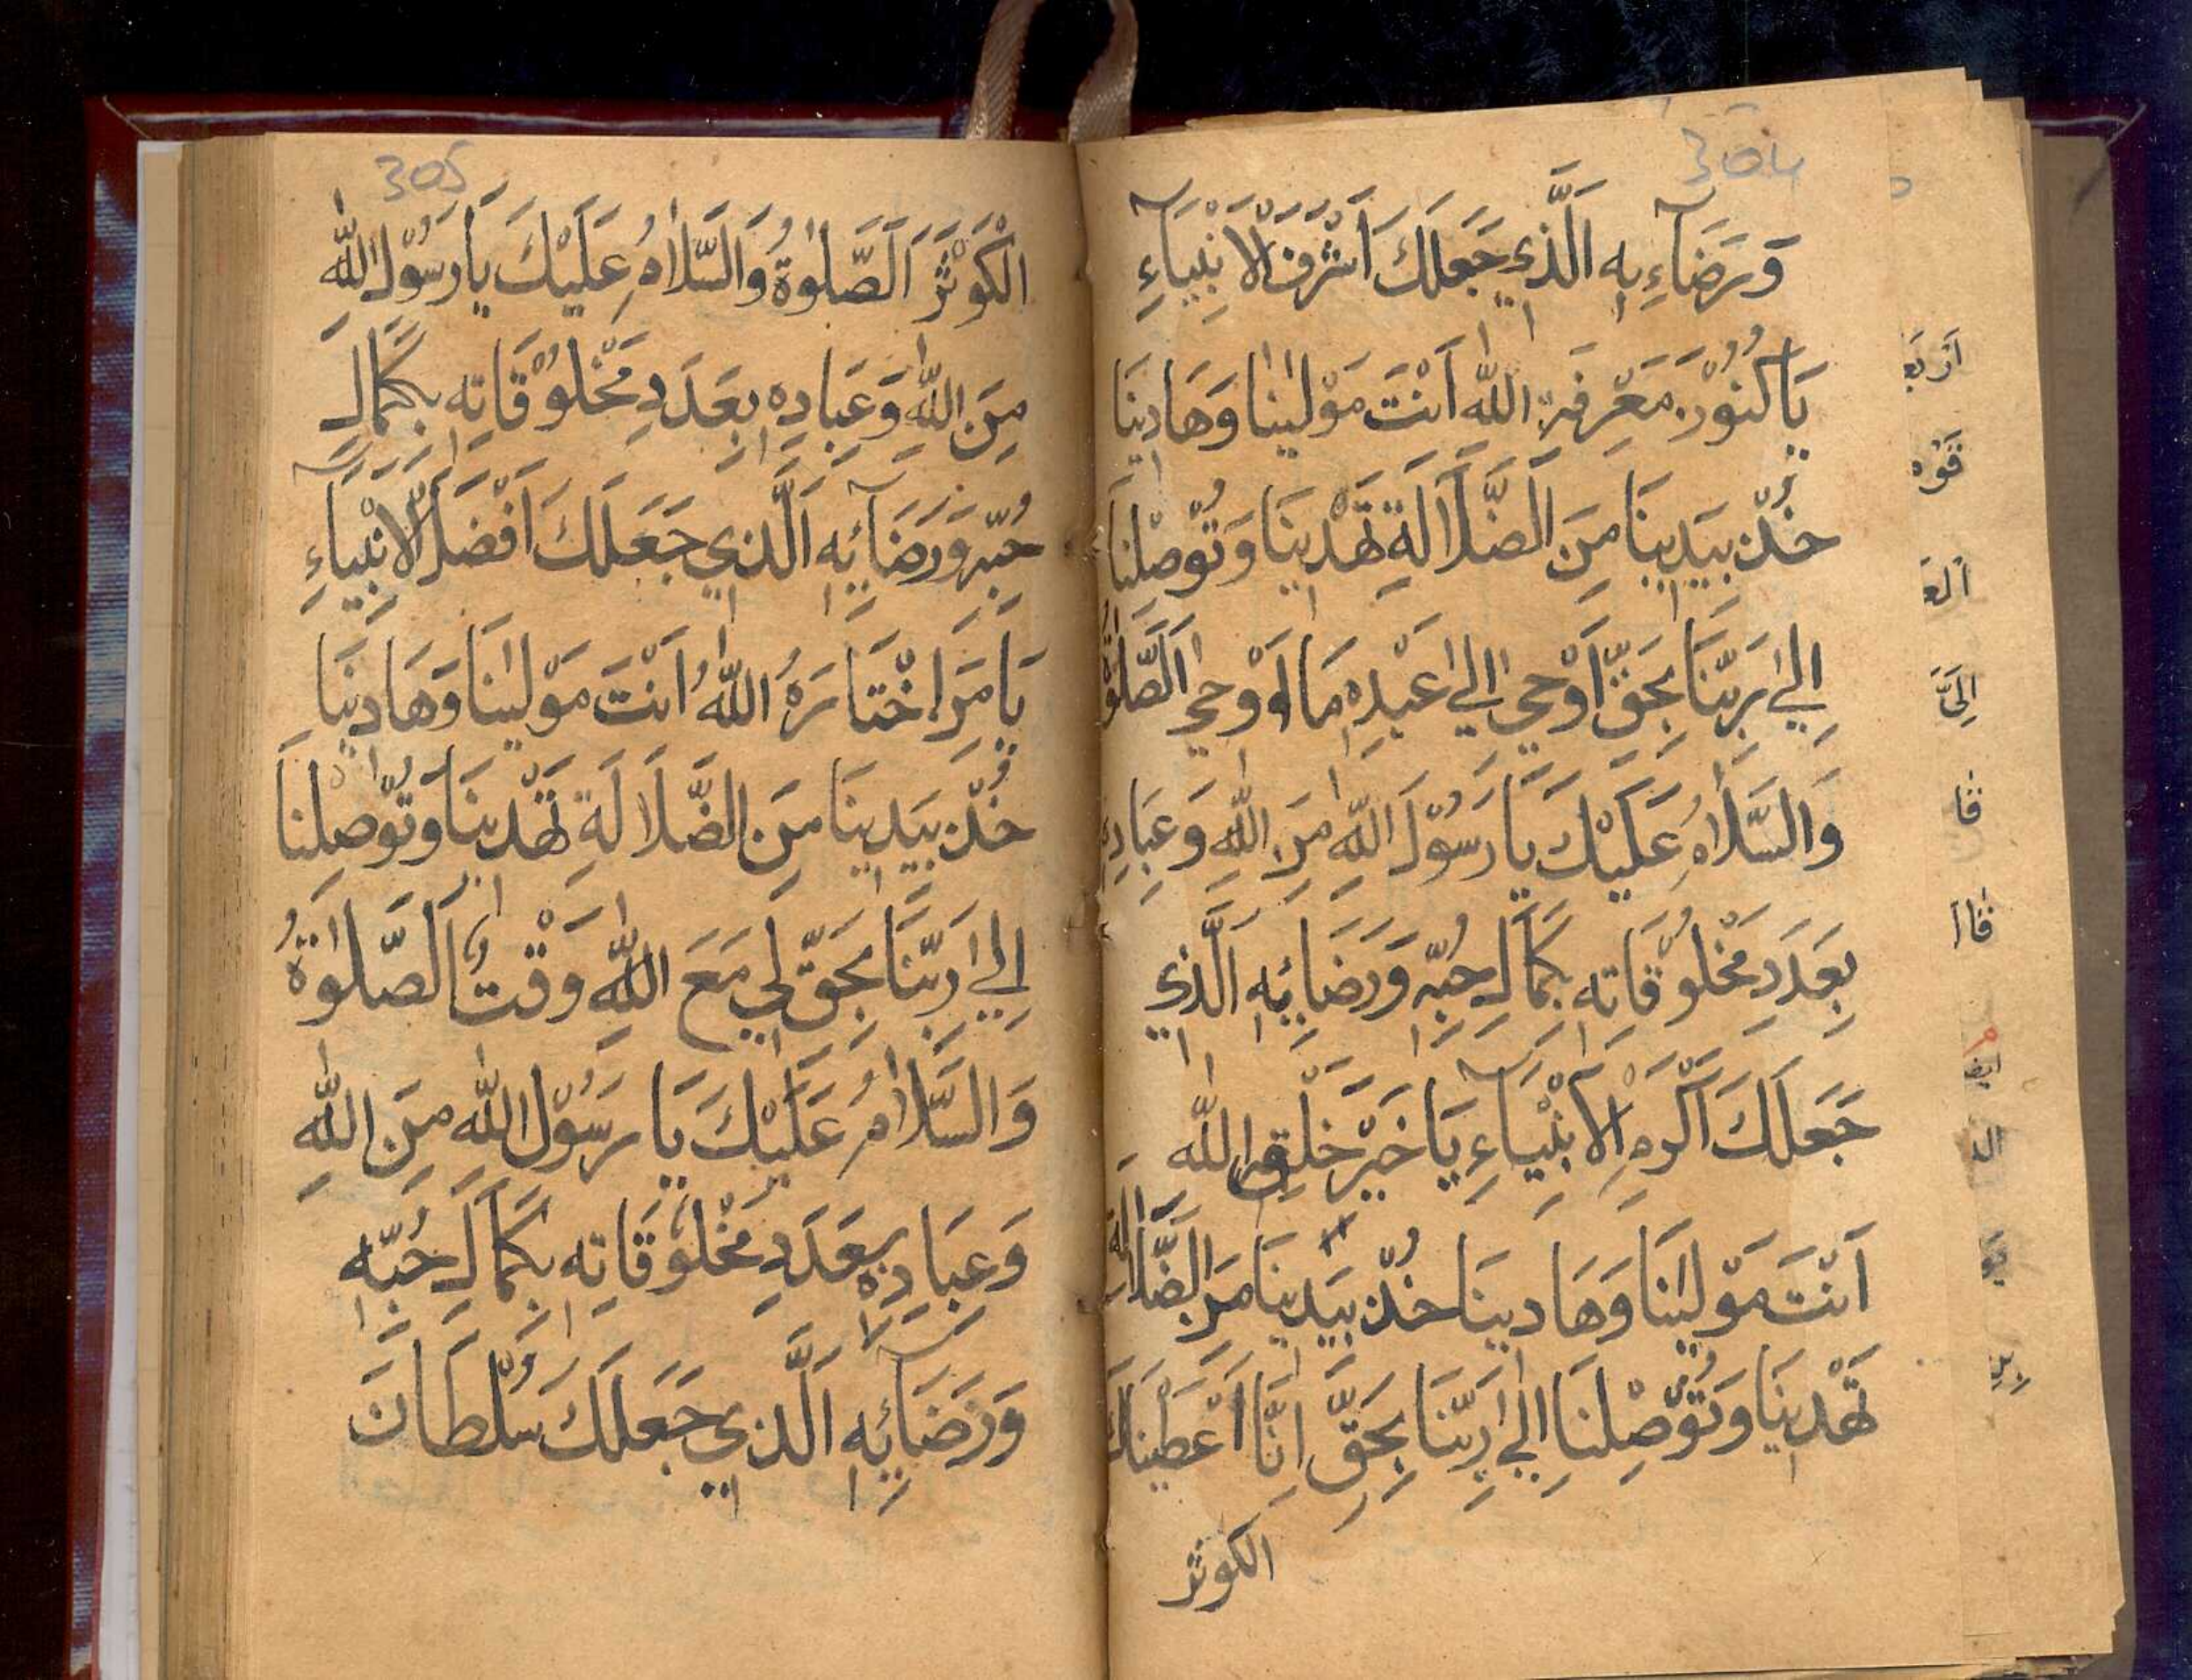 304
وَرَضَآءِهِ الَّذِي جَعَلَكَ اَشْرَفَ الْاَنْبِيَآءِ
يَا كنُوْزَ مَعْرِفَةِ اللّٰه اَنْتَ مَوْلٰينٰا وَهَادِينَا
خُذْ بِيَدِينَا مِنَ الضَّلَالَةِ تَهْدِينَا وَتُوْصِلْنَا
اِلٰي رَبِّنَا بِحَقِّ اَوْحٰي اِلٰي عَبْدِهِ مَا اَوْحٰي اَلصَّلٰوةُ
وَالسَّلَامُ عَلَيْكَ يَا رَسُوْلَ اللّٰهِ مِنَ اللّٰهِ وَعِبَادِهِ
بِعَدَدِ مَخْلُوْقَاتِهِ بِكَمَالِ حُبِّهِ وَرَضَائِهِ الَّذِي
جَعَلَكَ اَكْرَمَ الْاَنْبِيَآءِ يَا خَيْرَ خَلْقِ اللّٰه
اَنْتَ مَوْلٰينَا وَهَادِينَا خُذْ بِيَدِينَا مِنَ الضَّلَالَةِ
تَهْدِينَا وَتُوْصِلْنَا اِلٰي رَبِّنَا بِحَقِّ اِنَّا اَعْطَيْنَاكَ
الكوثر
اَرْبَع
قوه
اَلع
اِلَيَّ
قا
قاا
ايض
الد
305
الْكَوْثَرَ اَلصَّلٰوةُ وَالسَّلَامُ عَلَيْكَ يَا رَسُوْلَ اللّٰه
مِنَ اللّٰهِ وَعِبَادِهِ بِعَدَدِ مَخْلُوْقَاتِهِ بِكَمَالِ
حُبِّهِ وَرَضَآئِهِ اَلَّذِي جَعَلَكَ اَفْضَلَ الْاَنْبِيَآءِ
يَا مَنِ اخْتَارَهُ اللّٰهُ اَنْتَ مَوْلٰينَا وَهَادِينَا
خُذْ بِيَدِينَا مِنَ الضَّلَالَةِ تَهْدِينَا وَتُوْصِلْنَا
اِلٰي رَبِّنَا بِحَقِّ لِي مَعَ اللّٰهِ وَقْتٌ اَلصَّلٰوةُ
وَالسَّلَامُ عَلَيْكَ يَا رَسُوْلَ اللّٰه مِنَ اللّٰهِ
وَعِبَادِهِ بِعَدَدِ مَخْلُوْقَاتِهِ بِكَمَالِ حُبِّهِ
وَرَضَآئِهِ الَّذِي جَعَلَكَ سُلْطَانَ